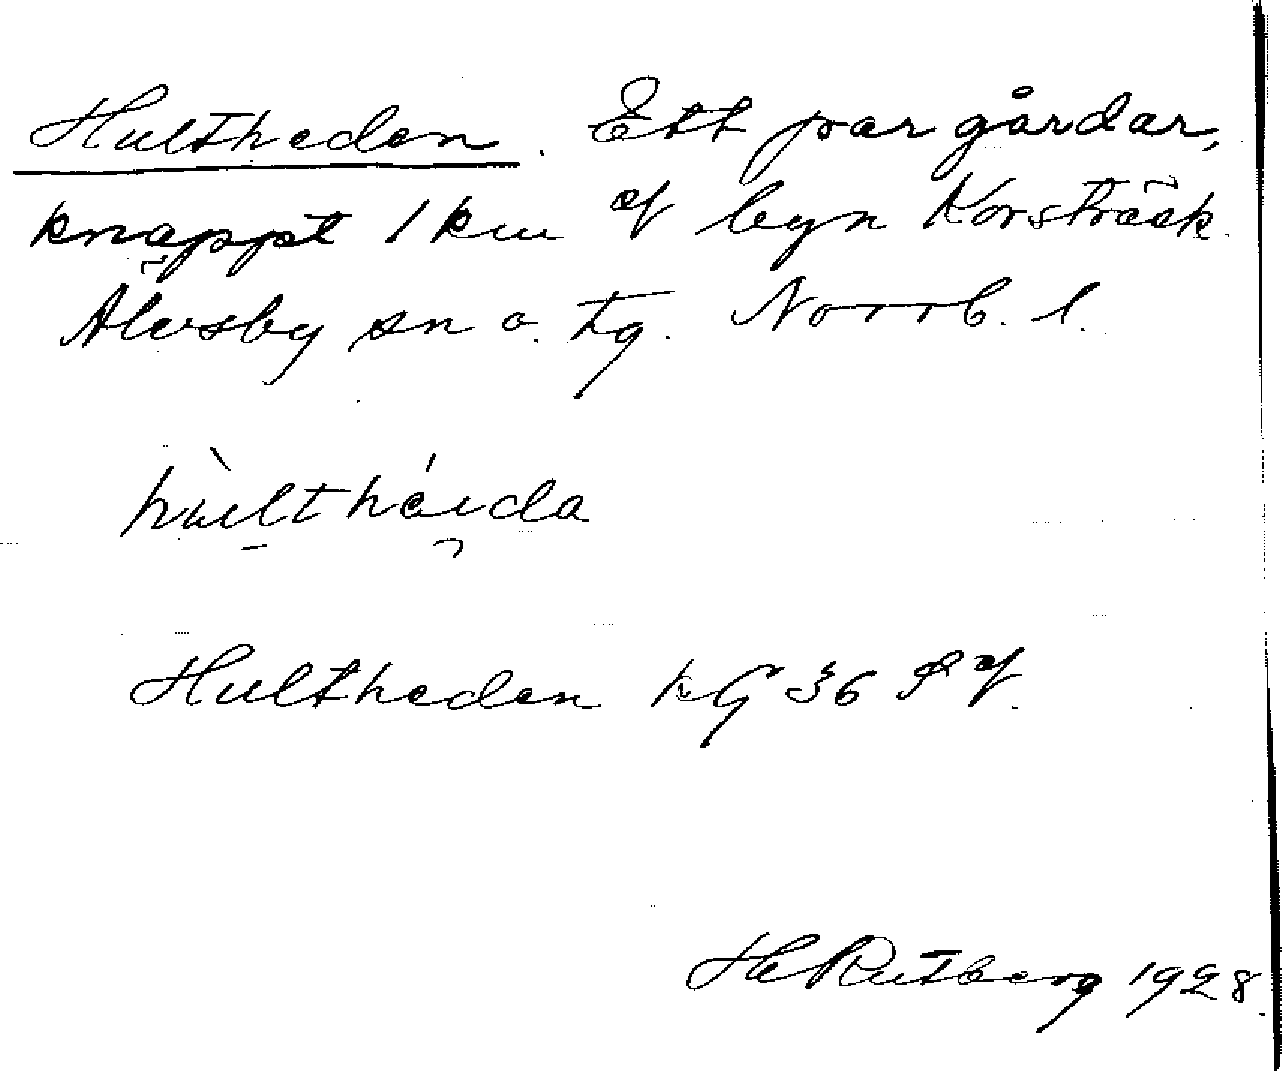 Hultheden. Ett par gårdar,
knappt 1 km of byn Korsträsk.
Älvsby sn o. tg. Norrb. l.
hùlthéida
Hultheden kG 36
H Rutberg 1928.